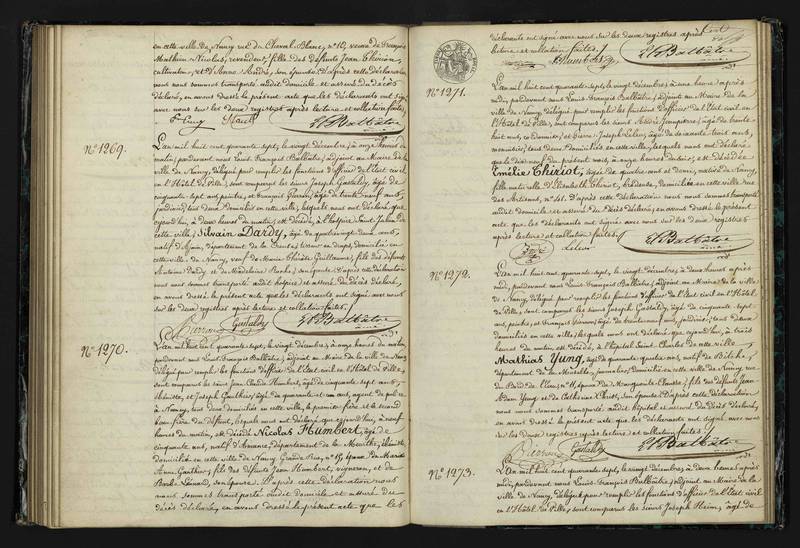 en cette ville de Nancy rue du Cheval-Blanc, n.º 10, veuve de François
Mathieu Nicolas, revendeur, fille des défunts Jean Chiron,
cultivateur, et d'Anne André, son épouse. D'après cette déclaration
nous nous sommes transporté audit domicile et assuré du décès
déclaré, en avons dressé le présent acte que les déclarants ont signé
avec nous sur les deux registres après lecture et collation faites.
L. F. Balbâtre
N.º 1269.
L'an mil huit cent quarante sept, le vingt Décembre, à onze heures du
matin, pardevant nous Louis-François Balbâtre, adjoint au Maire de la
ville de Nancy, délégué pour remplir les fonctions d'officier de l'Etat civil
en l'Hôtel de Ville, sont comparus les sieurs Joseph Gastaldy, âgé de
cinquante-sept ans, peintre, et François
tous deux domiciliés en cette ville, lesquels nous ont déclaré que
aujourd'hui, à deux heures du matin, est décédé, à l'hospice Saint-Julien de
cette ville, Silvain Dardy, âgé de quatre vingt deux ans,
natif d'Ajain, département de la Creuse, tisseur en draps, domicilié en
cette ville de Nancy, veuf de Marie Thérèse Guillaume, fils des défunts
Antoine Dardy et de Madeleine son épouse. D'après cette déclaration
nous nous sommes transporté audit hospice et assuré du décès déclaré,
en avons dressé le présent acte que les déclarants ont signé avec nous
sur les deux registres après lecture et collation faites.
Gastaldy L. F. Balbâtre
N.º 1270.
L'an mil huit cent quarante sept, le vingt décembre, à onze heures du matin,
pardevant nous Louis-François Balbâtre, adjoint au Maire de la ville de Nancy
délégué pour remplir les fonctions d'officier de l'Etat civil en l'Hôtel de Ville,
sont comparus les sieurs Jean-Claude Humbert, âgé de cinquante sept ans,
ébéniste, et Joseph Gauthier, âgé de quarante-et-un ans, agent de police
à Nancy, tous deux domiciliés en cette ville, le premier frère et le second
beau-frère du défunt, lesquels nous ont déclaré que aujourd'hui, à neuf
heures du matin, est décédé Nicolas Humbert, âgé de
cinquante ans, natif d'Amance, département de la Meurthe, ébéniste,
domicilié en cette ville de Nancy Grande Rue, n.º 17, époux de Marie
Anne Gauthier; fils des défunts Jean Humbert, vigneron, et de
Barbe Lénard, son épouse. D'après cette déclaration nous
nous sommes transporté audit domicile et assuré du
décès déclaré, en avons dressé le présent acte que les
déclarants ont signé avec nous sur les deux registres après
lecture et collation faites.
Humbert L. F. Balbâtre
N.º 1271.
L'an mil huit cent quarante sept, le vingt décembre, à une heure après
midi, pardevant nous Louis-François Balbâtre, adjoint au Maire de la
ville de Nancy, délégué pour remplir les fonctions d'officier de l'Etat civil en
l'Hôtel de Ville, sont comparus les sieurs André Jeanpierre, âgé de trente
huit ans, et Pierre-Joseph Lelev, âgé de soixante-trois ans,
tous deux domiciliés en cette ville, lesquels nous ont déclaré
que le dix-neuf du présent mois, à onze heures du soir, est décédée
Emélie Thiriot, âgée de quatre ans et demi, native de Nancy,
fille naturelle d'Elisabeth Thiriot, brodeuse, domiciliée en cette ville rue
des Artisans, n.º 41. D'après cette déclaration nous nous sommes transporté
audit domicile et assuré du décès déclaré, en avons dressé le présent
acte que les déclarants ont signé avec nous sur les deux registres
après lecture et collation faites.
L. F. Balbâtre
N.º 1272.
L'an mil huit cent quarante sept, le vingt décembre, à deux heures après
midi, pardevant nous Louis-François Balbâtre, adjoint au Maire de la ville
de Nancy, délégué pour remplir les fonctions d'officier de l'Etat civil en l'Hôtel
de Ville, sont comparus les sieurs Joseph Gastaldy, âgé de cinquante sept
ans, peintre, et François tous deux
domiciliés en cette ville, lesquels nous ont déclaré que aujourd'hui, à trois
heures du matin, est décédé, à l'hôpital Saint-Charles de cette ville
Mathias Yung, âgé de quarante quatre ans, natif de Bitche,
département de la Moselle, journalier, domicilié en cette ville de Nancy rue
du Bord de l'Eau, n.º 11, époux de Marguerite fils des défunts Jean
Adam Yung et de Catherine son épouse. D'après cette déclaration
nous nous sommes transporté audit hôpital et assuré du décès déclaré,
en avons dressé le présent acte que les déclarants ont signé avec nous
sur les deux registres après lecture et collation faites.
Gastaldy L. F. Balbâtre
N.º 1273.
L'an mil huit cent quarante sept, le vingt décembre, à deux heures après
midi, pardevant nous Louis-François Balbâtre, adjoint au Maire de la
ville de Nancy, délégué pour remplir les fonctions d'officier de l'Etat civil
en l'Hôtel de Ville, sont comparus les sieurs Joseph Heim, âgé de